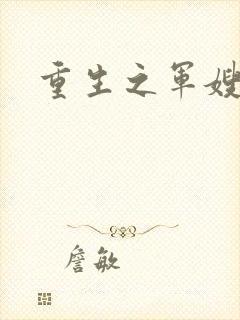 重生之军嫂
詹敏